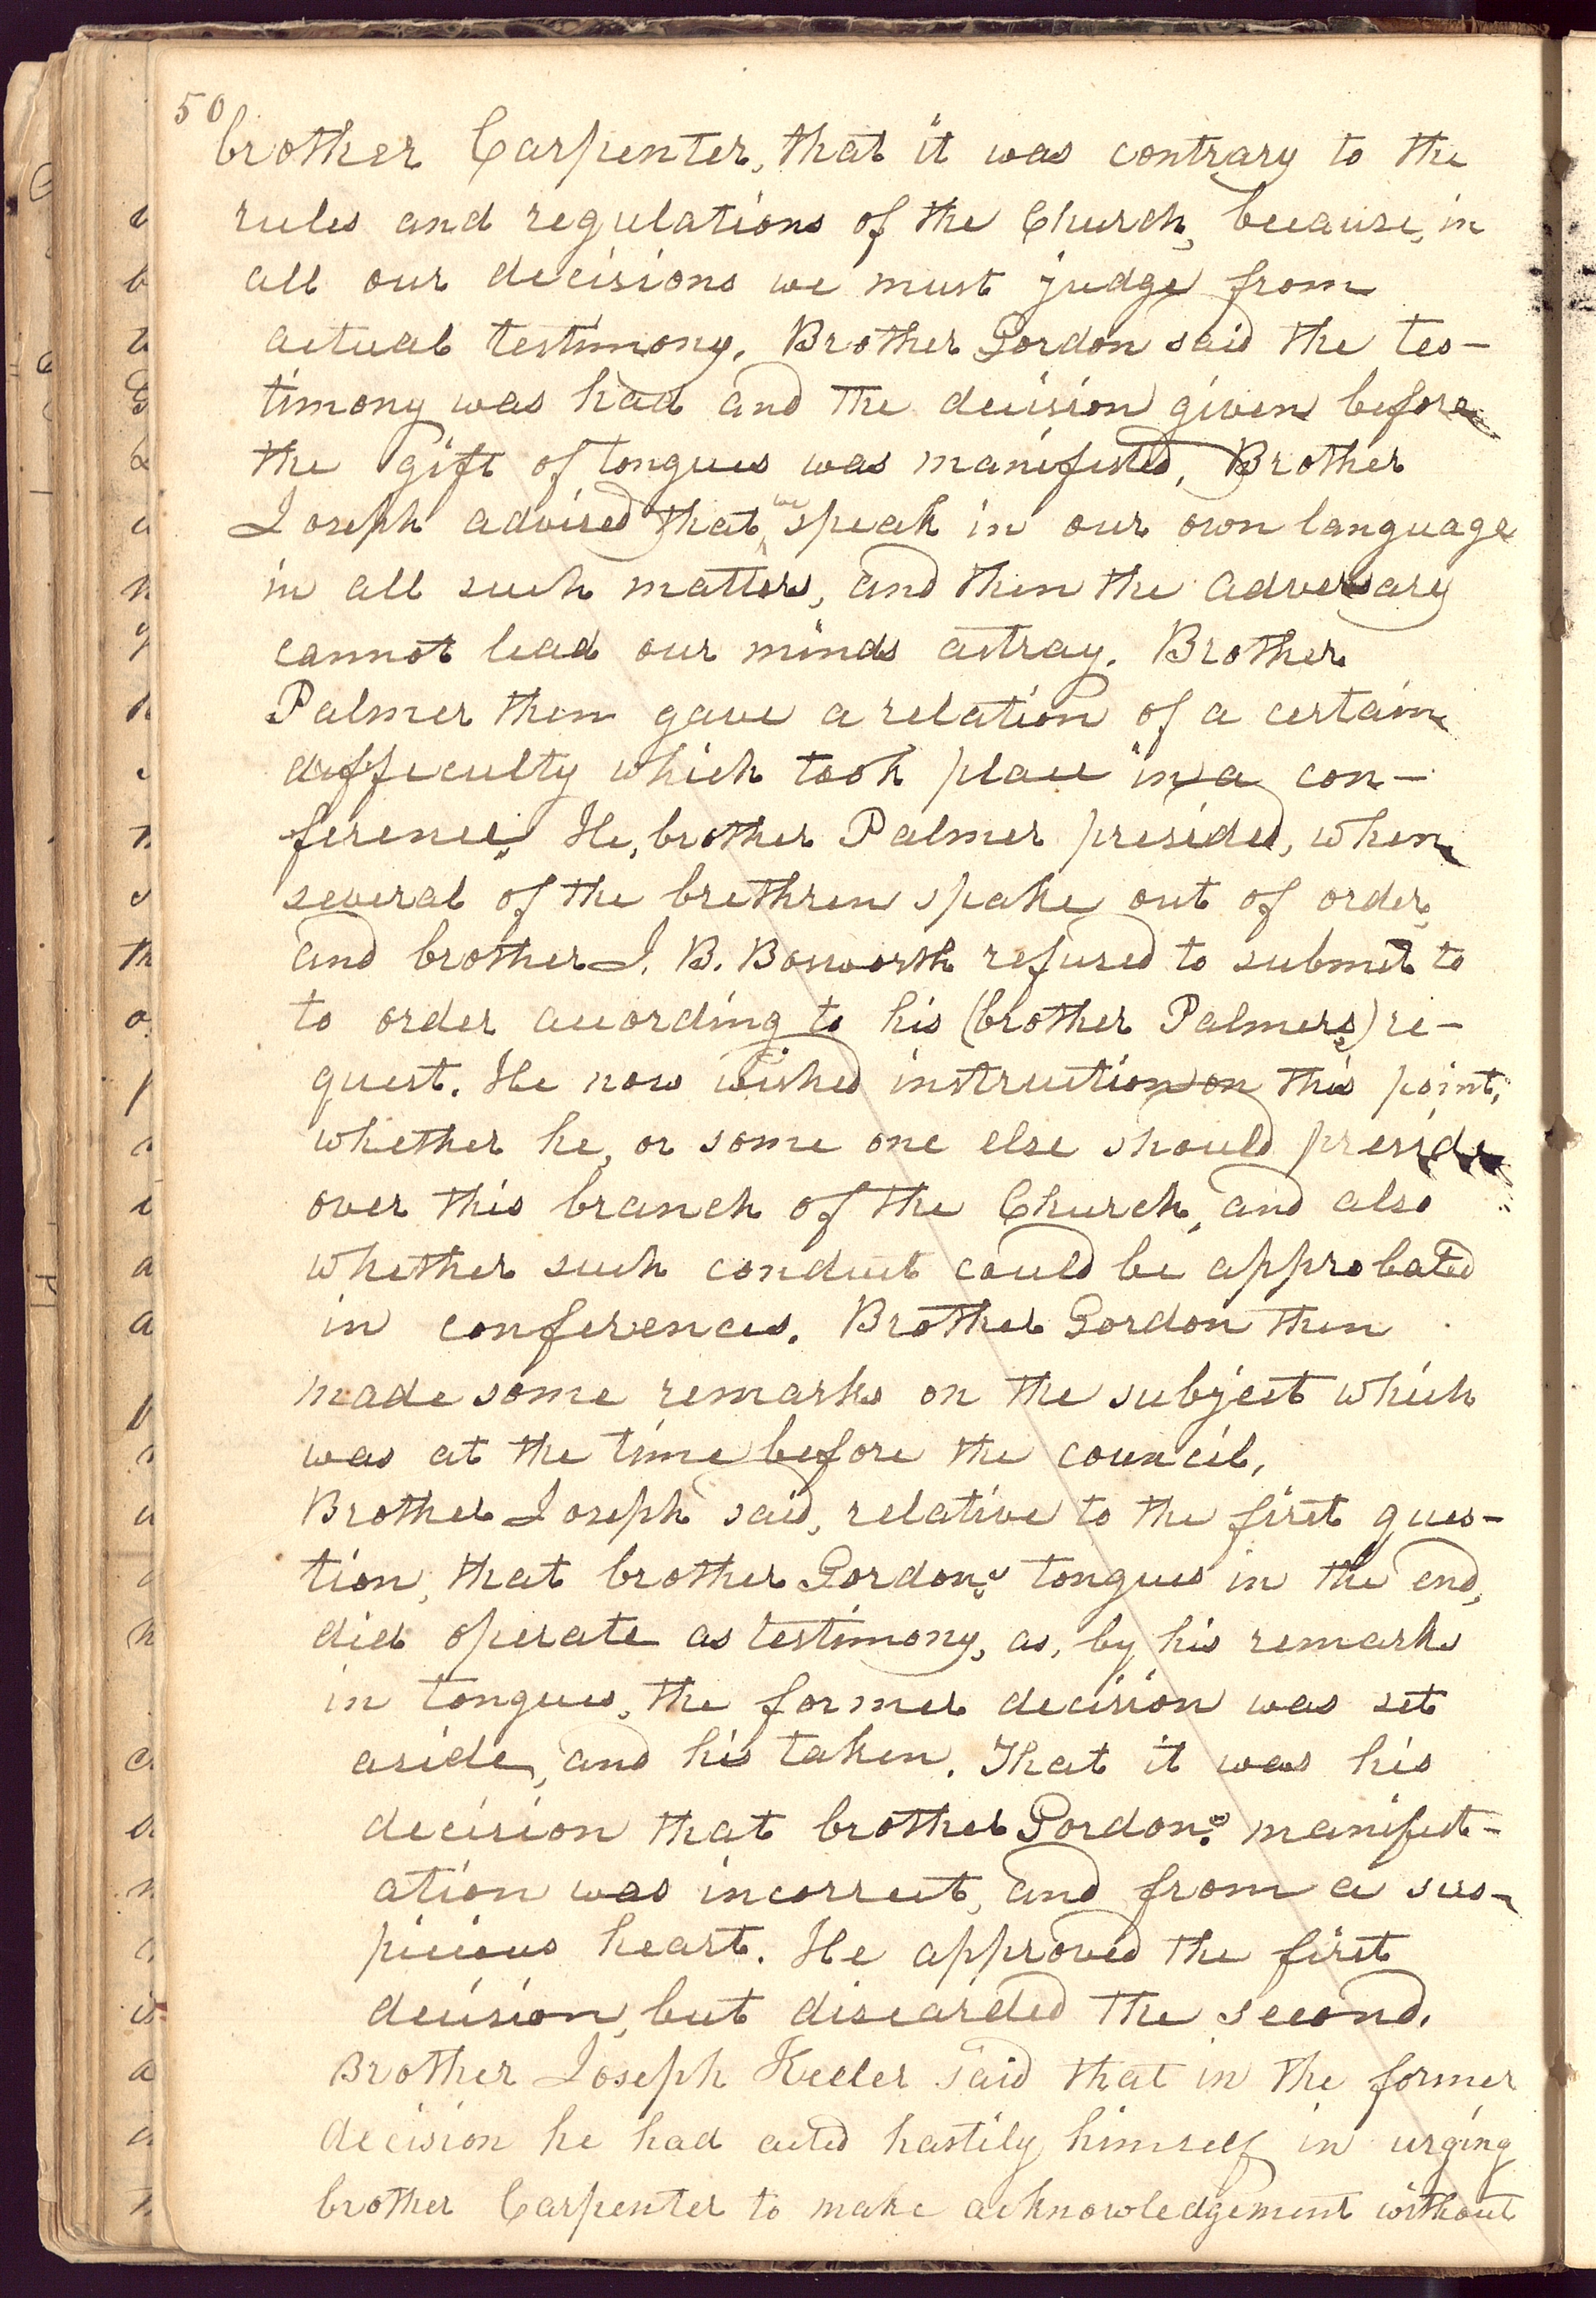 50
brother Carpenter, that it was contrary to the
rules and regulations of the Church, because, in
all our decisions we must judge from
actual testimony. Brother Gordon said the tes-
timony was had and the decision given before
the gift of tongues was manifested. Brother
Joseph advised that we speak in our own language
in all such matters, and then the adversary
cannot lead our minds astray. Brother
Palmer then gave a relation of a certain
difficulty which took place in a con-
ference. He, brother Palmer presided, when
several of the brethren spake out of order,
and brother J. B. Bosworth refused to submit to
to order according to his (brother Palmers) re-
quest. He now wished instruction on this point,
whether he, or some one else should preside
over this branch of the Church, and also
whether such conduct could be approbated
in conferences. Brother Gordon then
made some remarks on the subject which
was at the time before the council.
Brother Joseph said, relative to the first ques-
tion, that brother Gordon's tongues in the end,
did operate as testimony, as, by his remarks
in tongues, the former decision was set
aside, and his taken. That it was his
decision that brother Gordon's manifest-
ation was incorrect, and from a sus-
picious heart. He approved the first
decision, but discarded the second.
Brother Joseph Keeler said that in the former
decision he had acted hastily himself in urging
brother Carpenter to make acknowledgement without